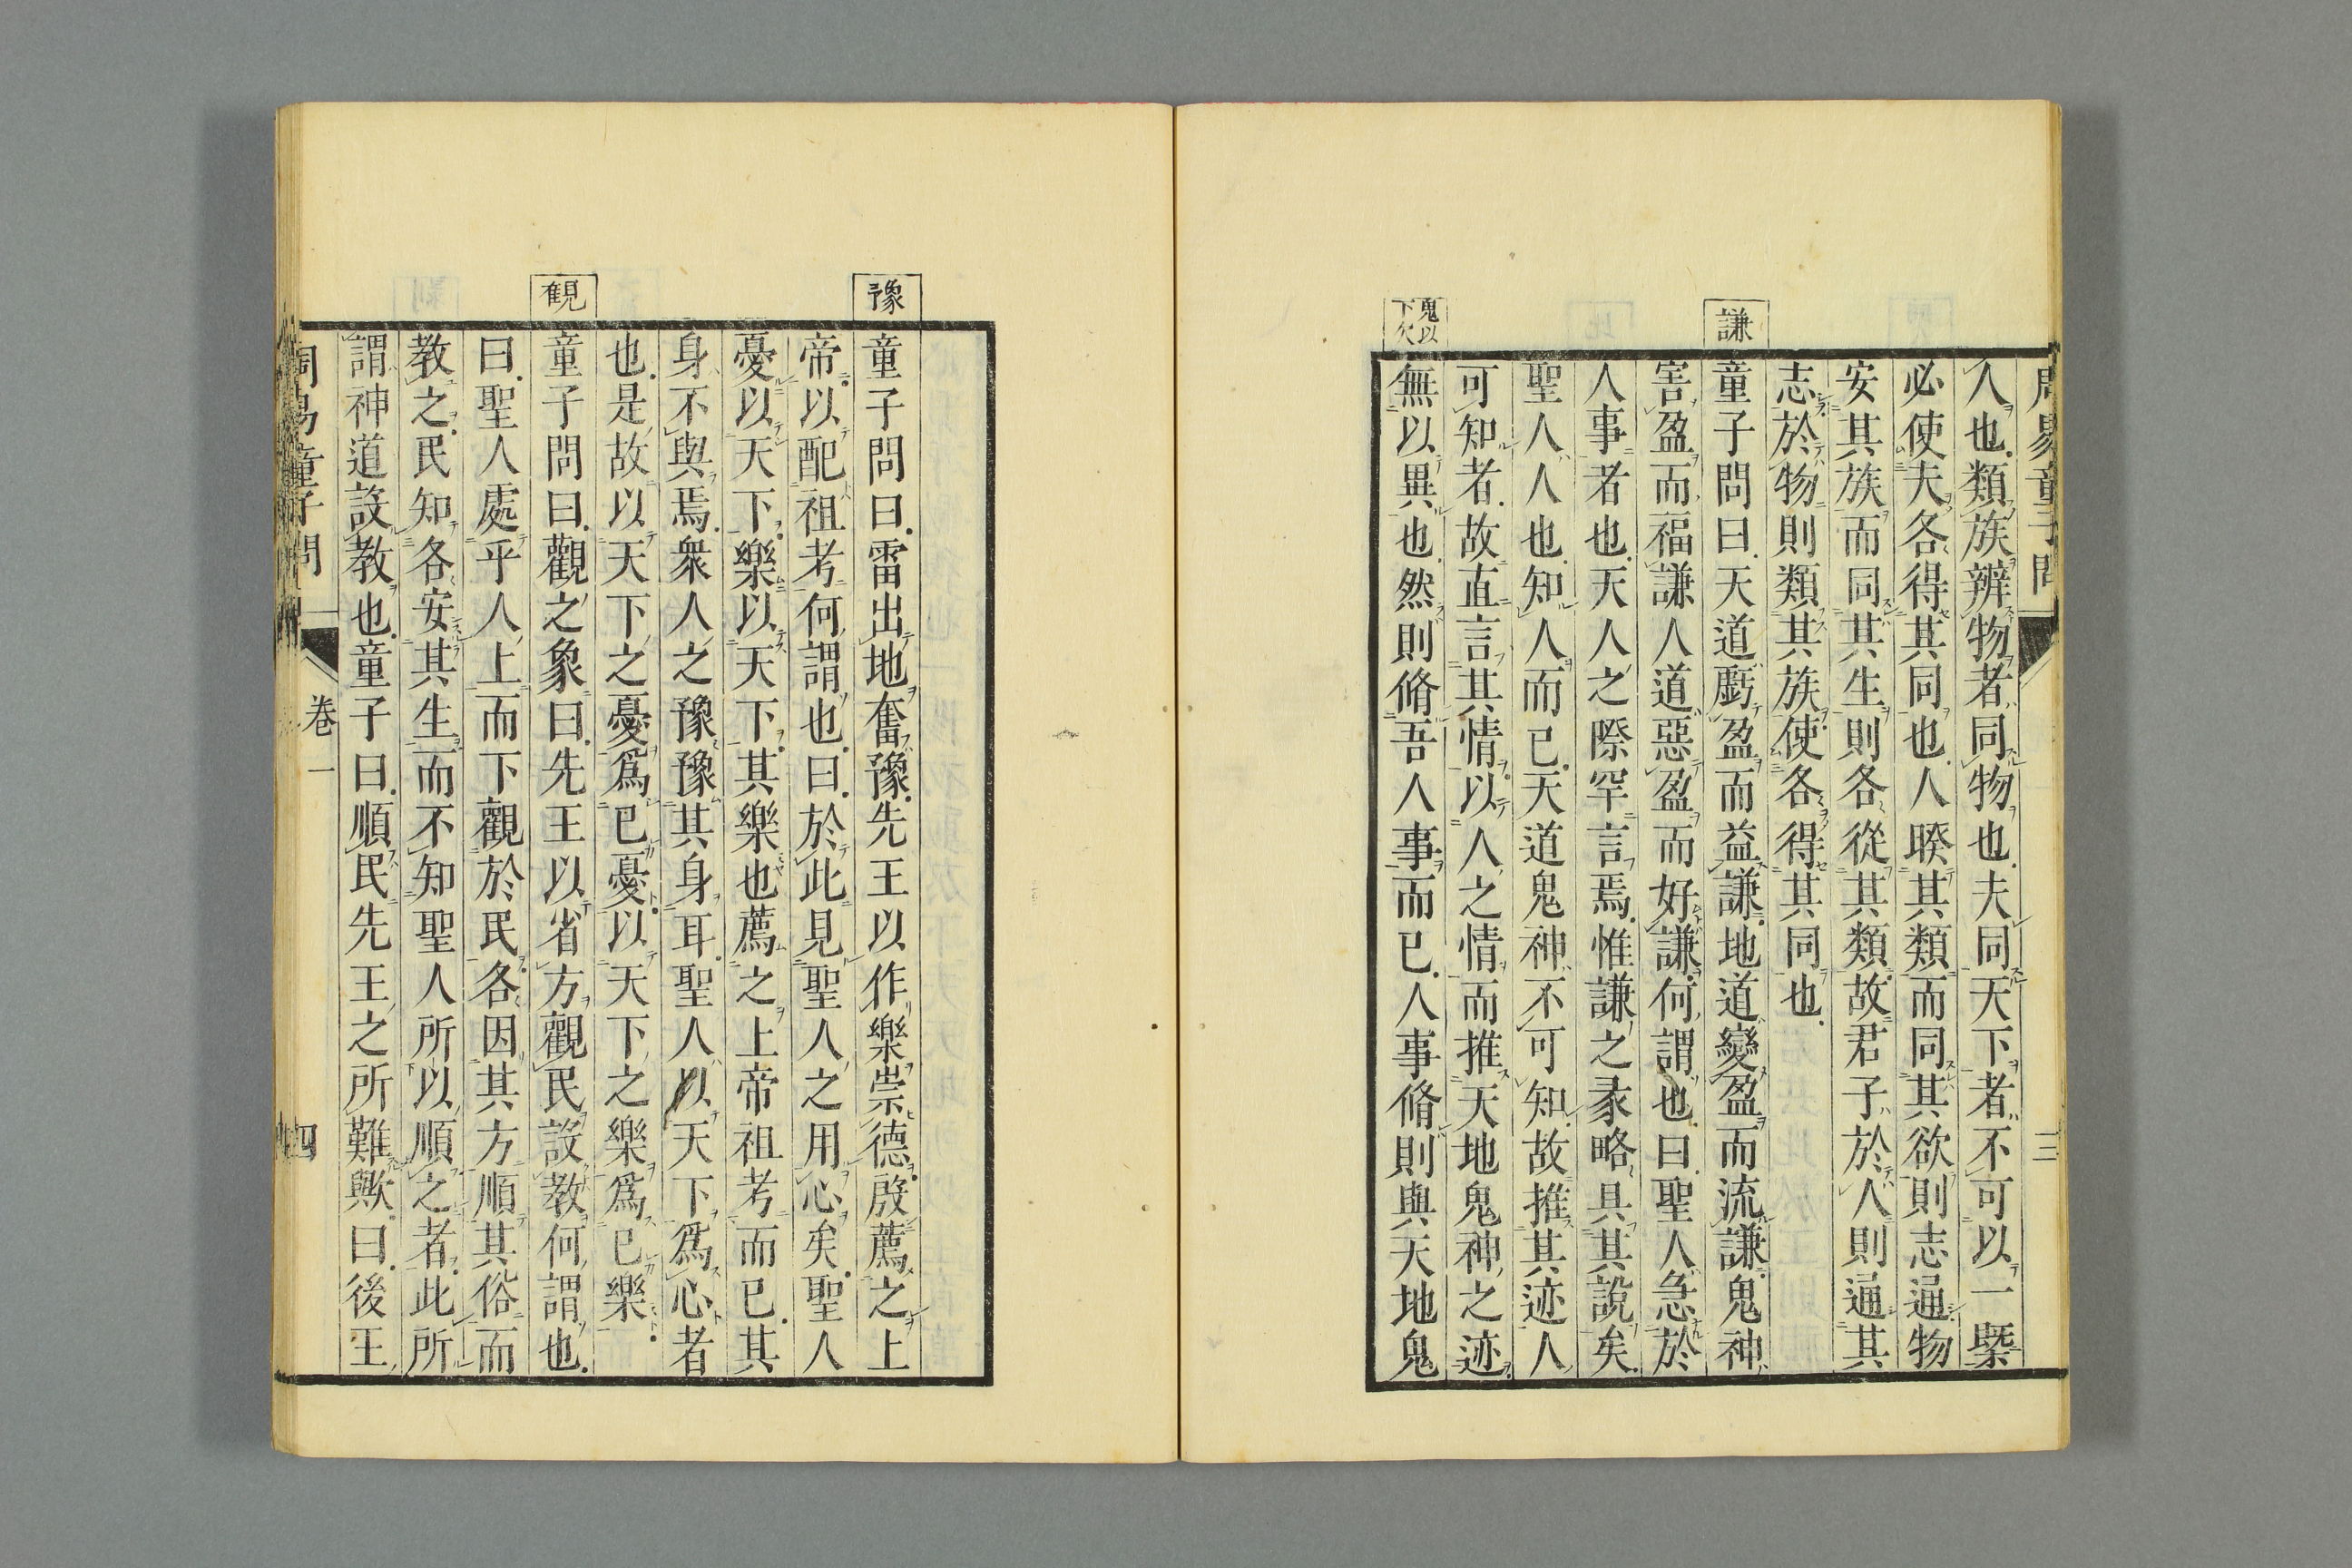 周易童子問
三
人也類族辨物者同物也夫同天下者不可以一槩
必使夫各得其同也人睽其類而同其欲則志通物
安其族而同其生則各從其類故君子於人則通其
志於物則類其族使各得其同也
謙
童子問曰天道虧盈而益謙地道變盈而流謙鬼神
害盈而福謙人道惡盈而好謙何謂也曰聖人急於
人事者也天人之際罕言焉惟謙之彖略具其說矣
聖人人也知人而已天道鬼神不可知故推其迹人
可知者故直言其情以人之情而推天地鬼神之迹
鬼以
下欠
無以異也然則脩吾人事而已人事脩則與天地鬼
豫
童子問曰雷出地奮豫先王以作樂崇德殷薦之上
帝以配祖考何謂也曰於此見聖人之用心矣聖人
憂以天下樂以天下其樂也薦之上帝祖考而已其
身不與焉衆人之豫豫其身耳聖人以天下爲心者
也是故以天下之憂爲已憂以天下之樂爲已樂
観
童子問曰觀之象曰先王以省方觀民設教何謂也
曰聖人處乎人上而下觀於民各因其方順其俗而
教之民知各安其生而不知聖人所以順之者此所
謂神道設教也童子曰順民先王之所難歟曰後王
周易童子問
卷一
四